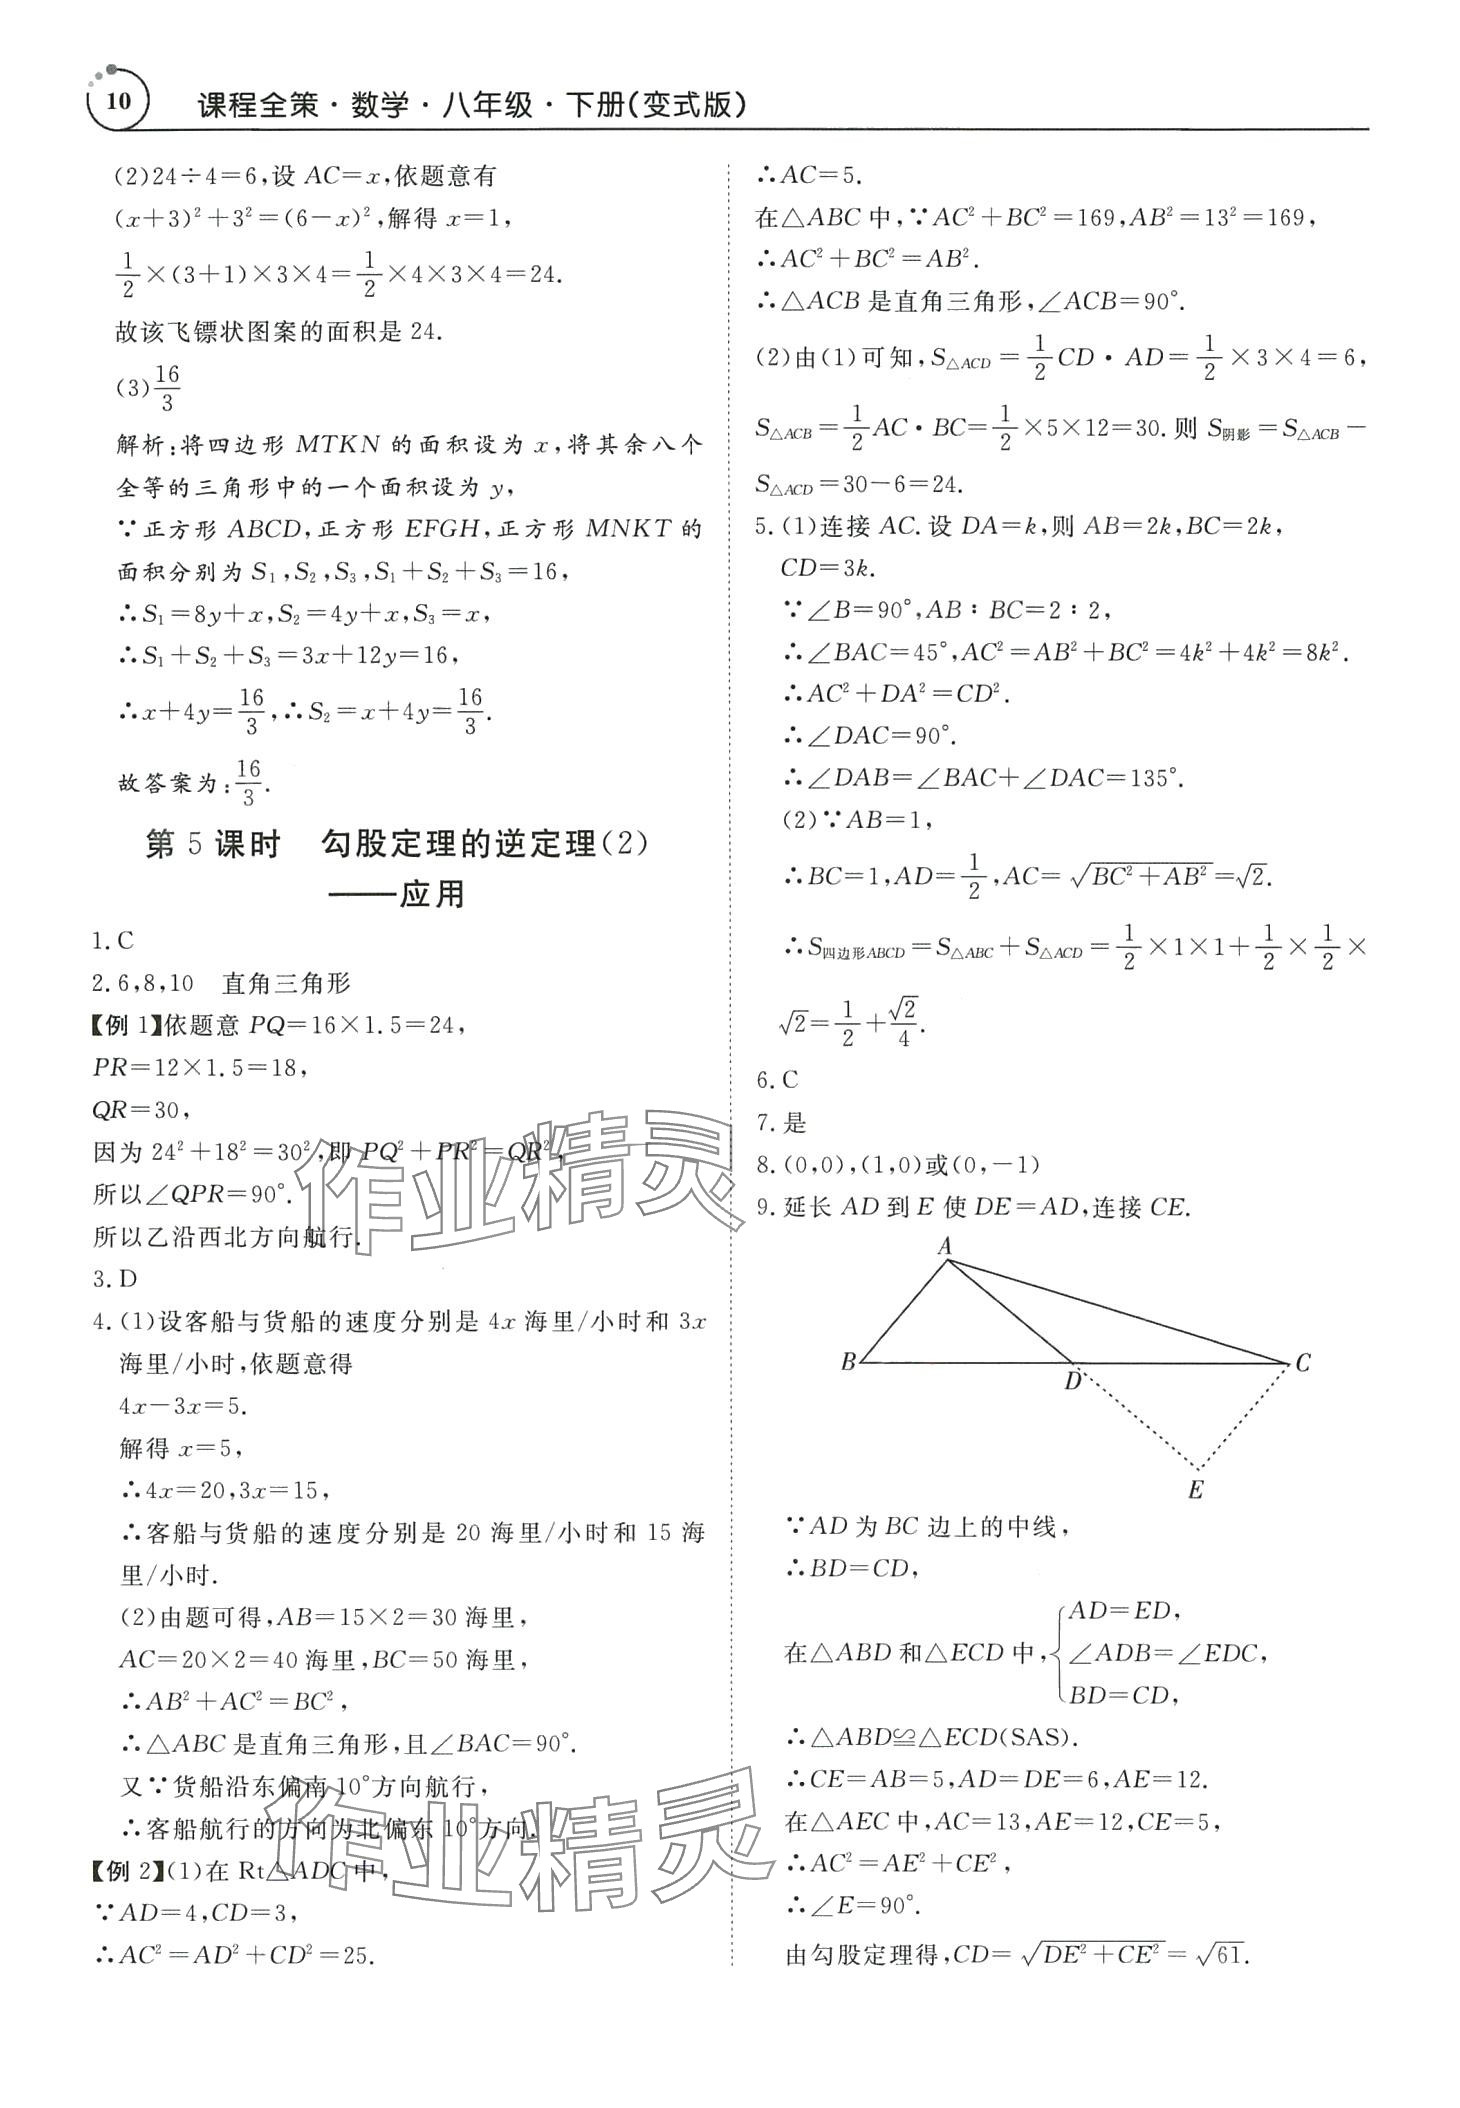 10
课程全策·数学·八年级·下册(变式版)
(2)24÷4=6,设 AC=x,依题意有
(x+3)²+3²=(6-x)²,解得 x=1,
1/2×(3+1)×3×4=1/2×4×3×4=24.
故该飞镖状图案的面积是 24.
(3)16/3
解析:将四边形 MTKN 的面积设为 x,将其余八个
全等的三角形中的一个面积设为 y,
∵正方形 ABCD,正方形 EFGH,正方形 MNKT 的
面积分别为 S₁,S₂,S₃,S₁+S₂+S₃=16,
∴S₁=8y+x,S₂=4y+x,S₃=x,
∴S₁+S₂+S₃=3x+12y=16,
∴x+4y=16/3,∴S₂=x+4y=16/3.
故答案为:16/3.
第 5 课时 勾股定理的逆定理(2)
——应用
1.C
2.6,8,10 直角三角形
【例 1】依题意 PQ=16×1.5=24,
PR=12×1.5=18,
QR=30,
因为 24²+18²=30²,即 PQ²+PR²=QR²,
所以∠QPR=90°.
所以乙沿西北方向航行.
3.D
4.(1)设客船与货船的速度分别是 4x 海里/小时和 3x
海里/小时,依题意得
4x-3x=5.
解得 x=5,
∴4x=20,3x=15,
∴客船与货船的速度分别是 20 海里/小时和 15 海
里/小时.
(2)由题可得,AB=15×2=30 海里,
AC=20×2=40 海里,BC=50 海里,
∴AB²+AC²=BC²,
∴△ABC 是直角三角形,且∠BAC=90°.
又∵货船沿东偏南 10°方向航行,
∴客船航行的方向为北偏东 10°方向.
【例 2】(1)在 Rt△ADC 中,
∵AD=4,CD=3,
∴AC²=AD²+CD²=25.
∴AC=5.
在△ABC 中,∵AC²+BC²=169,AB²=13²=169,
∴AC²+BC²=AB².
∴△ACB 是直角三角形,∠ACB=90°.
(2)由(1)可知,S△ACD=1/2CD·AD=1/2×3×4=6,
S△ACB=1/2AC·BC=1/2×5×12=30.则 S阴影=S△ACB-
S△ACD=30-6=24.
5.(1)连接 AC.设 DA=k,则 AB=2k,BC=2k,
CD=3k.
∵∠B=90°,AB∶BC=2∶2,
∴∠BAC=45°,AC²=AB²+BC²=4k²+4k²=8k².
∴AC²+DA²=CD².
∴∠DAC=90°.
∴∠DAB=∠BAC+∠DAC=135°.
(2)∵AB=1,
∴BC=1,AD=1/2,AC=√(BC²+AB²)=√2.
∴S四边形ABCD=S△ABC+S△ACD=1/2×1×1+1/2×1/2×
√2=1/2+√2/4.
6.C
7.是
8.(0,0),(1,0)或(0,-1)
9.延长 AD 到 E 使 DE=AD,连接 CE.
A
B
D
C
E
∵AD 为 BC 边上的中线,
∴BD=CD,
在△ABD 和△ECD 中,{AD=ED,
∠ADB=∠EDC,
BD=CD,
∴△ABD≌△ECD(SAS).
∴CE=AB=5,AD=DE=6,AE=12.
在△AEC 中,AC=13,AE=12,CE=5,
∴AC²=AE²+CE²,
∴∠E=90°.
由勾股定理得,CD=√(DE²+CE²)=√61.
作业精灵
作业精灵